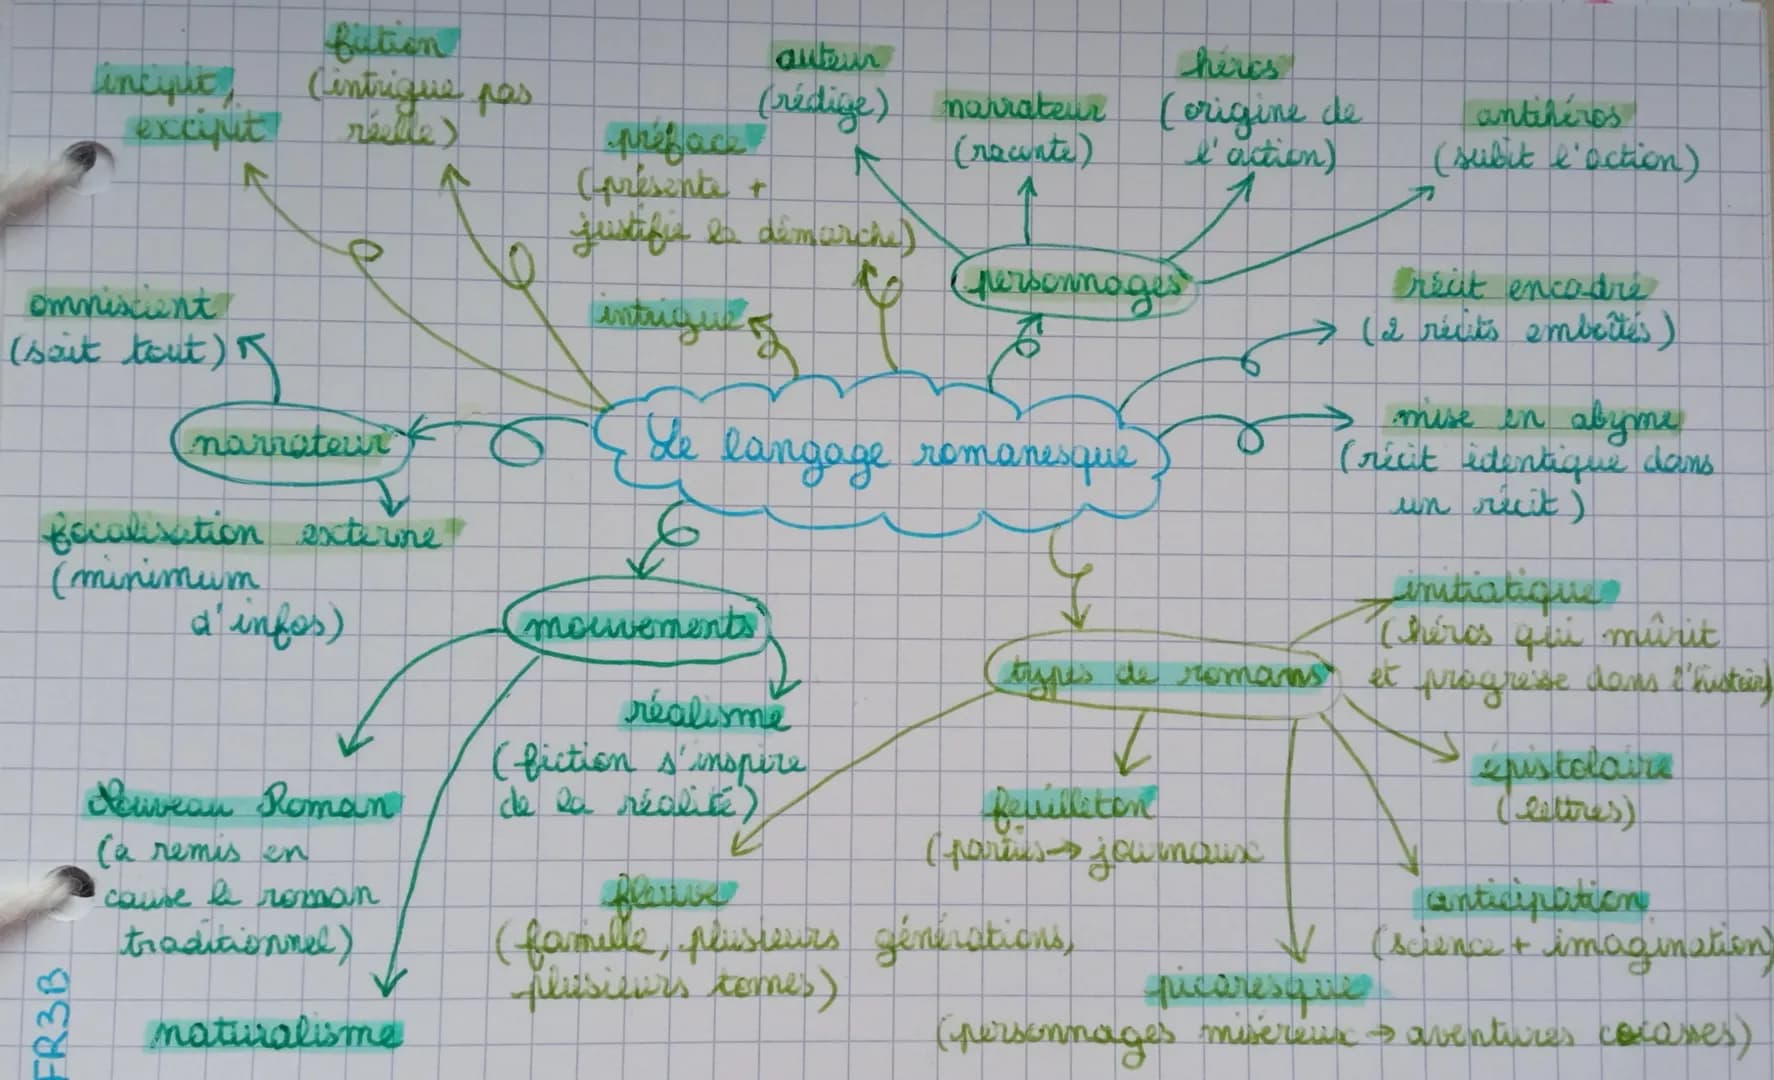 incipit,
excipit
fiction
(intrigue pas
réelle)
préface
(présente +
justifie la démarche)
auteur
(rédige)
narrateur
(raconte)
héros
(origine de
l'action)
antihéros
(subit l'action)
personnages
intrigue
omniscient
(sait tout)
narrateur
focalisation externe
(minimum
d'infos)
Le langage romanesque
récit encadré
(2 récits emboîtés)
mise en abyme
(récit identique dans
un récit)
mouvements
réalisme
(fiction s'inspire
de la réalité)
Nouveau Roman
(a remis en
cause le roman
traditionnel)
naturalisme
types de romans
initiatique
(héros qui mûrit
et progresse dans l'histoire)
épistolaire
(lettres)
feuilleton
(parties → journaux
anticipation
(science + imagination)
fleuve
(famille, plusieurs générations,
plusieurs tomes)
picaresque
(personnages miséreux → aventures cocasses)
FR3B